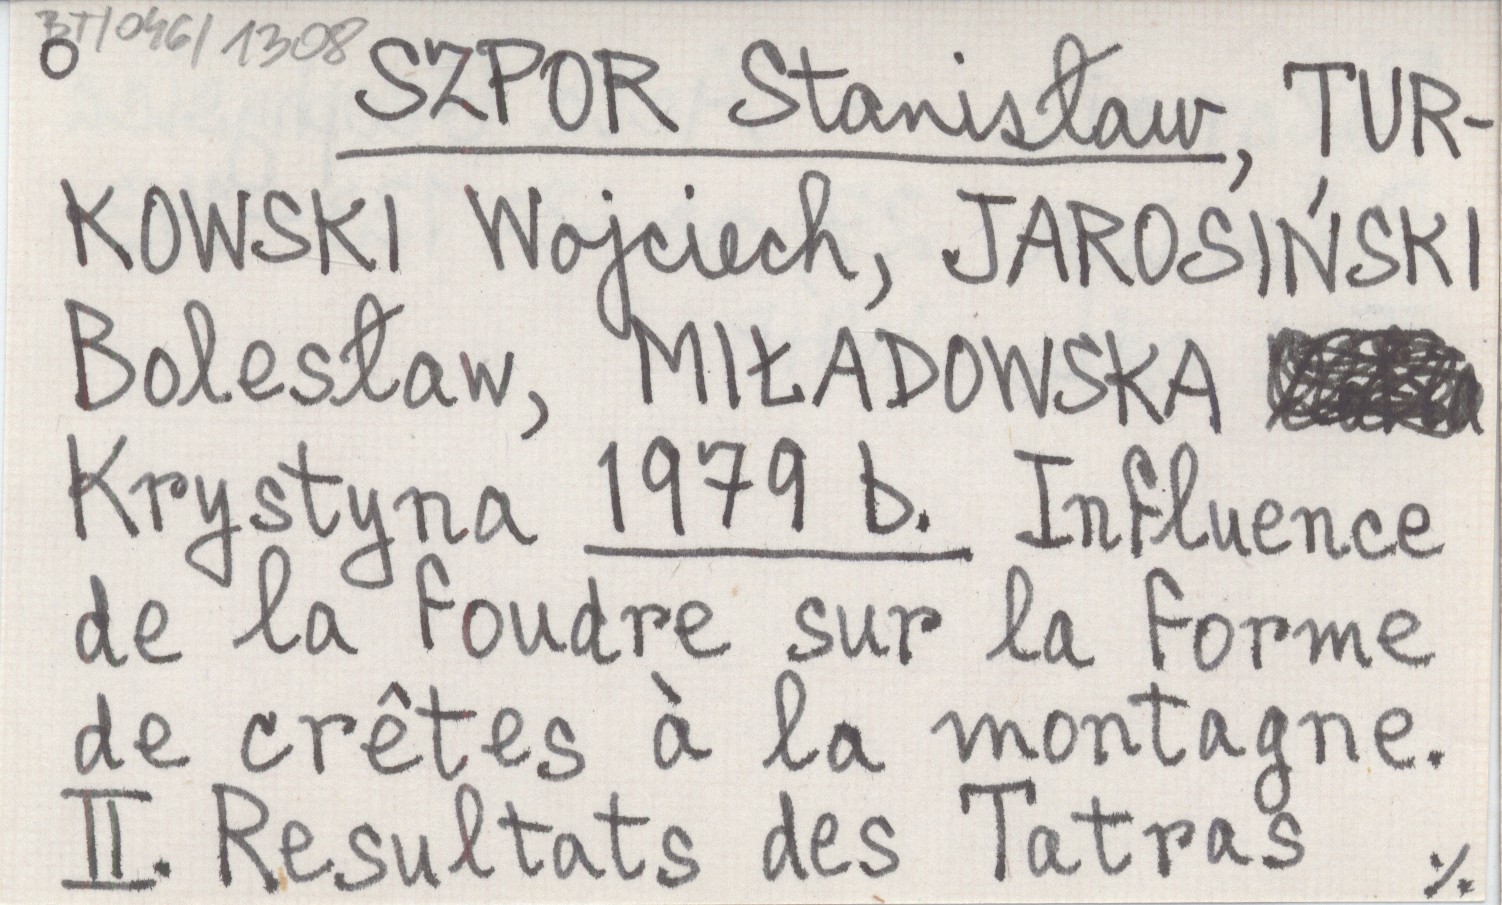 BT/046/1308
O
SZPOR Stanisław, TUR-
KOWSKI Wojciech, JAROSIŃSKI
Bolesław, MIŁADOWSKA
Krystyna 1979 b. Influence
de la foudre sur la forme
de crêtes à la montagne.
II. Resultats des Tatras ./.